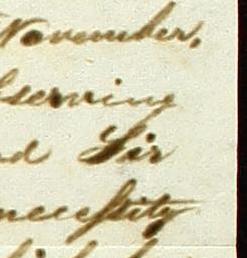 November,
bserving
nd Sir
necessity